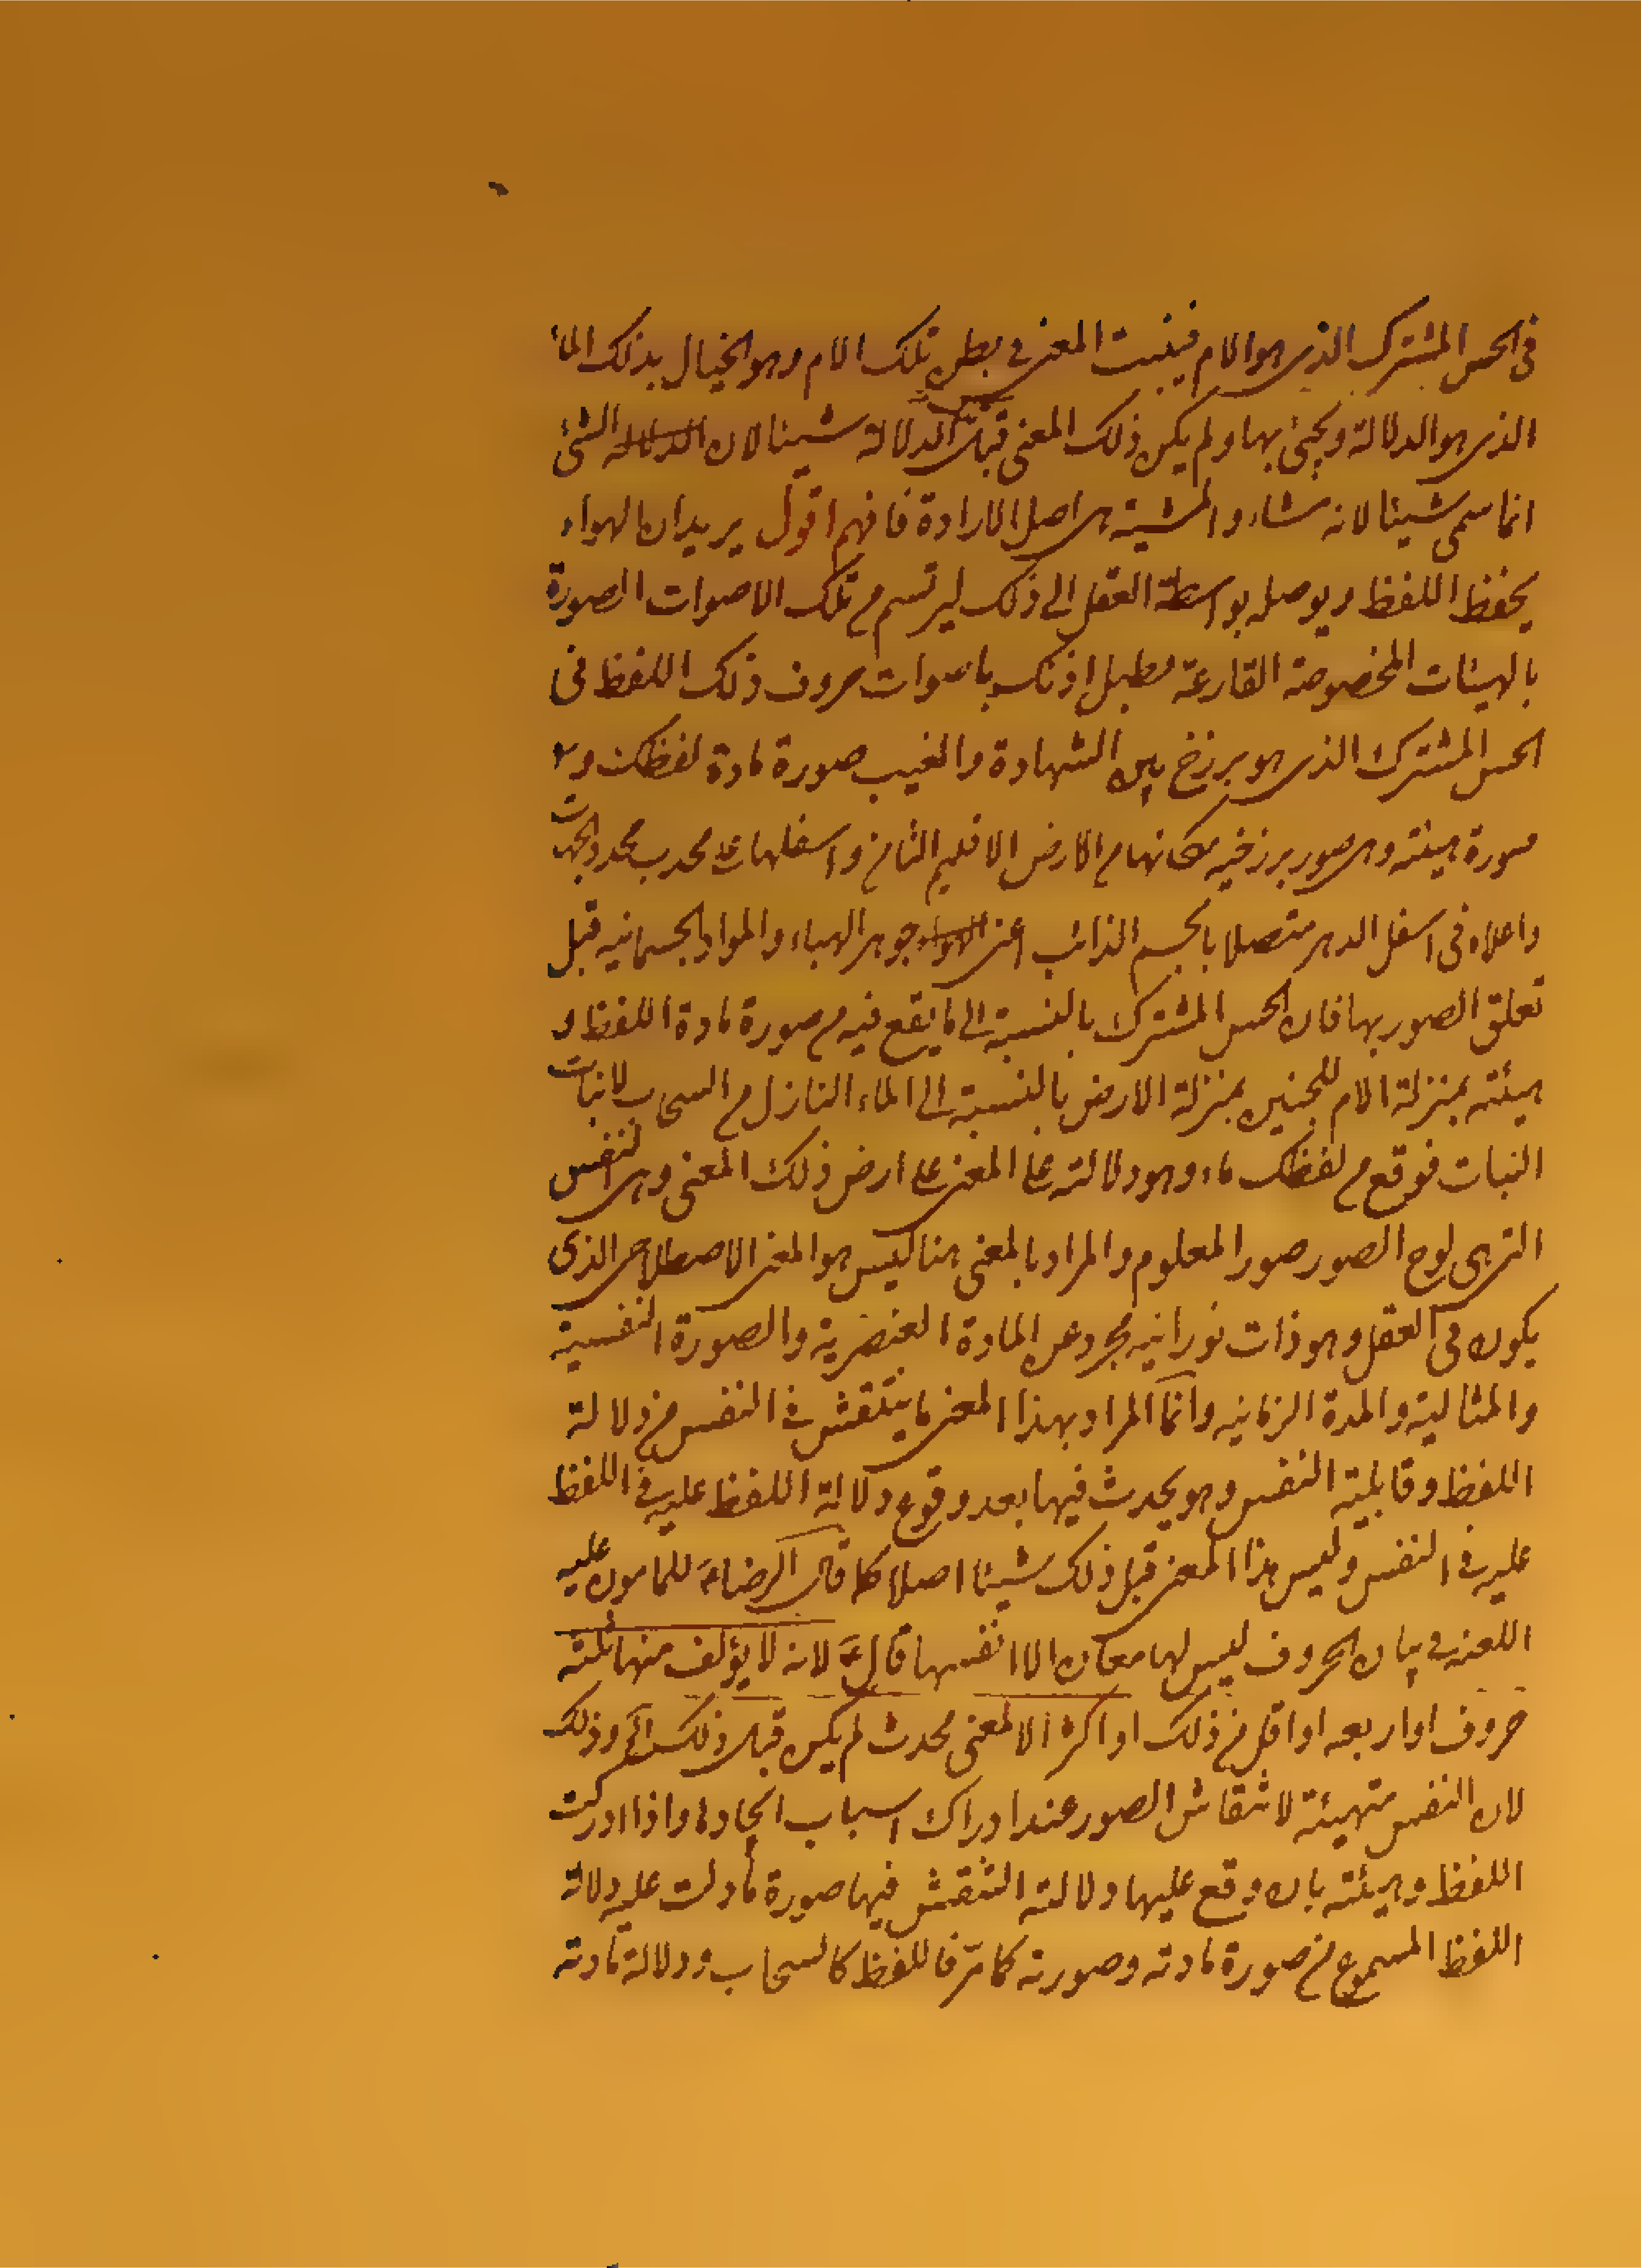 فى الحس المشترك الذى هو الام فينبت المعنى فى بطن تلك الام وهو الخيال بذلك الماء
الذى هو الدلالة ويحيى بها ولم يكن ذلك المعنى قبل الدلالة شيئا لان الشئ
انما سمى شيئا لانه مشاء والمشية هى اصل الارادة فافهم اقول يريد ان الهواء
يحفظ اللفظ ويوصله بواسطة العقل الى ذلك ليرتسم من تلك الاصوات الصورة
بالهيئات المخصوصة القارعة لطبل اذنك باصوات حروف ذلك اللفظ فى
الحس المشترك الذى هو برزخ بين الشهادة والغيب صورة مادة لفظك و
صورة هيئته وهى صور برزخيه مكانها من الارض الاقليم الثامن واسفلها على محدب محدد الجهات
واعلاه فى اسفل الدهر متصلا بالجسم الذائب اعنى جوهر الهباء والمواد الجسمانيه قبل
تعلق الصور بها فان الحس المشترك بالنسبة الى ما يقع فيه من صورة مادة اللفظ و
هيئته بمنزلة الام للجنين بمنزلة الارض بالنسبة الى الماء النازل من السحاب لانبات
النبات فوقع من لفظك ماء وهو دلالته على المعنى على ارض ذلك المعنى وهى النفس
التى هى لوح الصور صور المعلوم والمراد بالمعنى هنا ليس هو المعنى الاصطلاحى الذى
يكون فى العقل وهو ذات نورانيه مجرد عن المادة العنصرية والصورة النفسية
والمثالية والمدة الزمانيه وانما المراد بهذا المعنى ما ينتقش فى النفس من دلالة
اللفظ وقابلية النفس وهو يحدث فيها بعد وقوع دلالة اللفظ عليه فى اللفظ
عليه فى النفس وليس هذا المعنى قبل ذلك شيئا اصلا كما قال الرضا ع للمامون عليه
اللعنه فى بيان الحروف ليس لها معان الا انفسها قال ع لانه لا يؤلف منها ثلثه
حروف او اربعه او اقل من ذلك او اكثر الا لمعنى محدث لم يكن قبل ذلك الخ وذلك
لان النفس متهيئة لانتقاش الصور عند ادراك اسباب ايجادها واذا ادركت
اللفظ وهيئته بان وقع عليها دلالته انتقش فيها صورة ما دلت عليه دلالة
اللفظ المسموع من صورة مادته وصورته كما مر فاللفظ كالسحاب ودلالة مادته